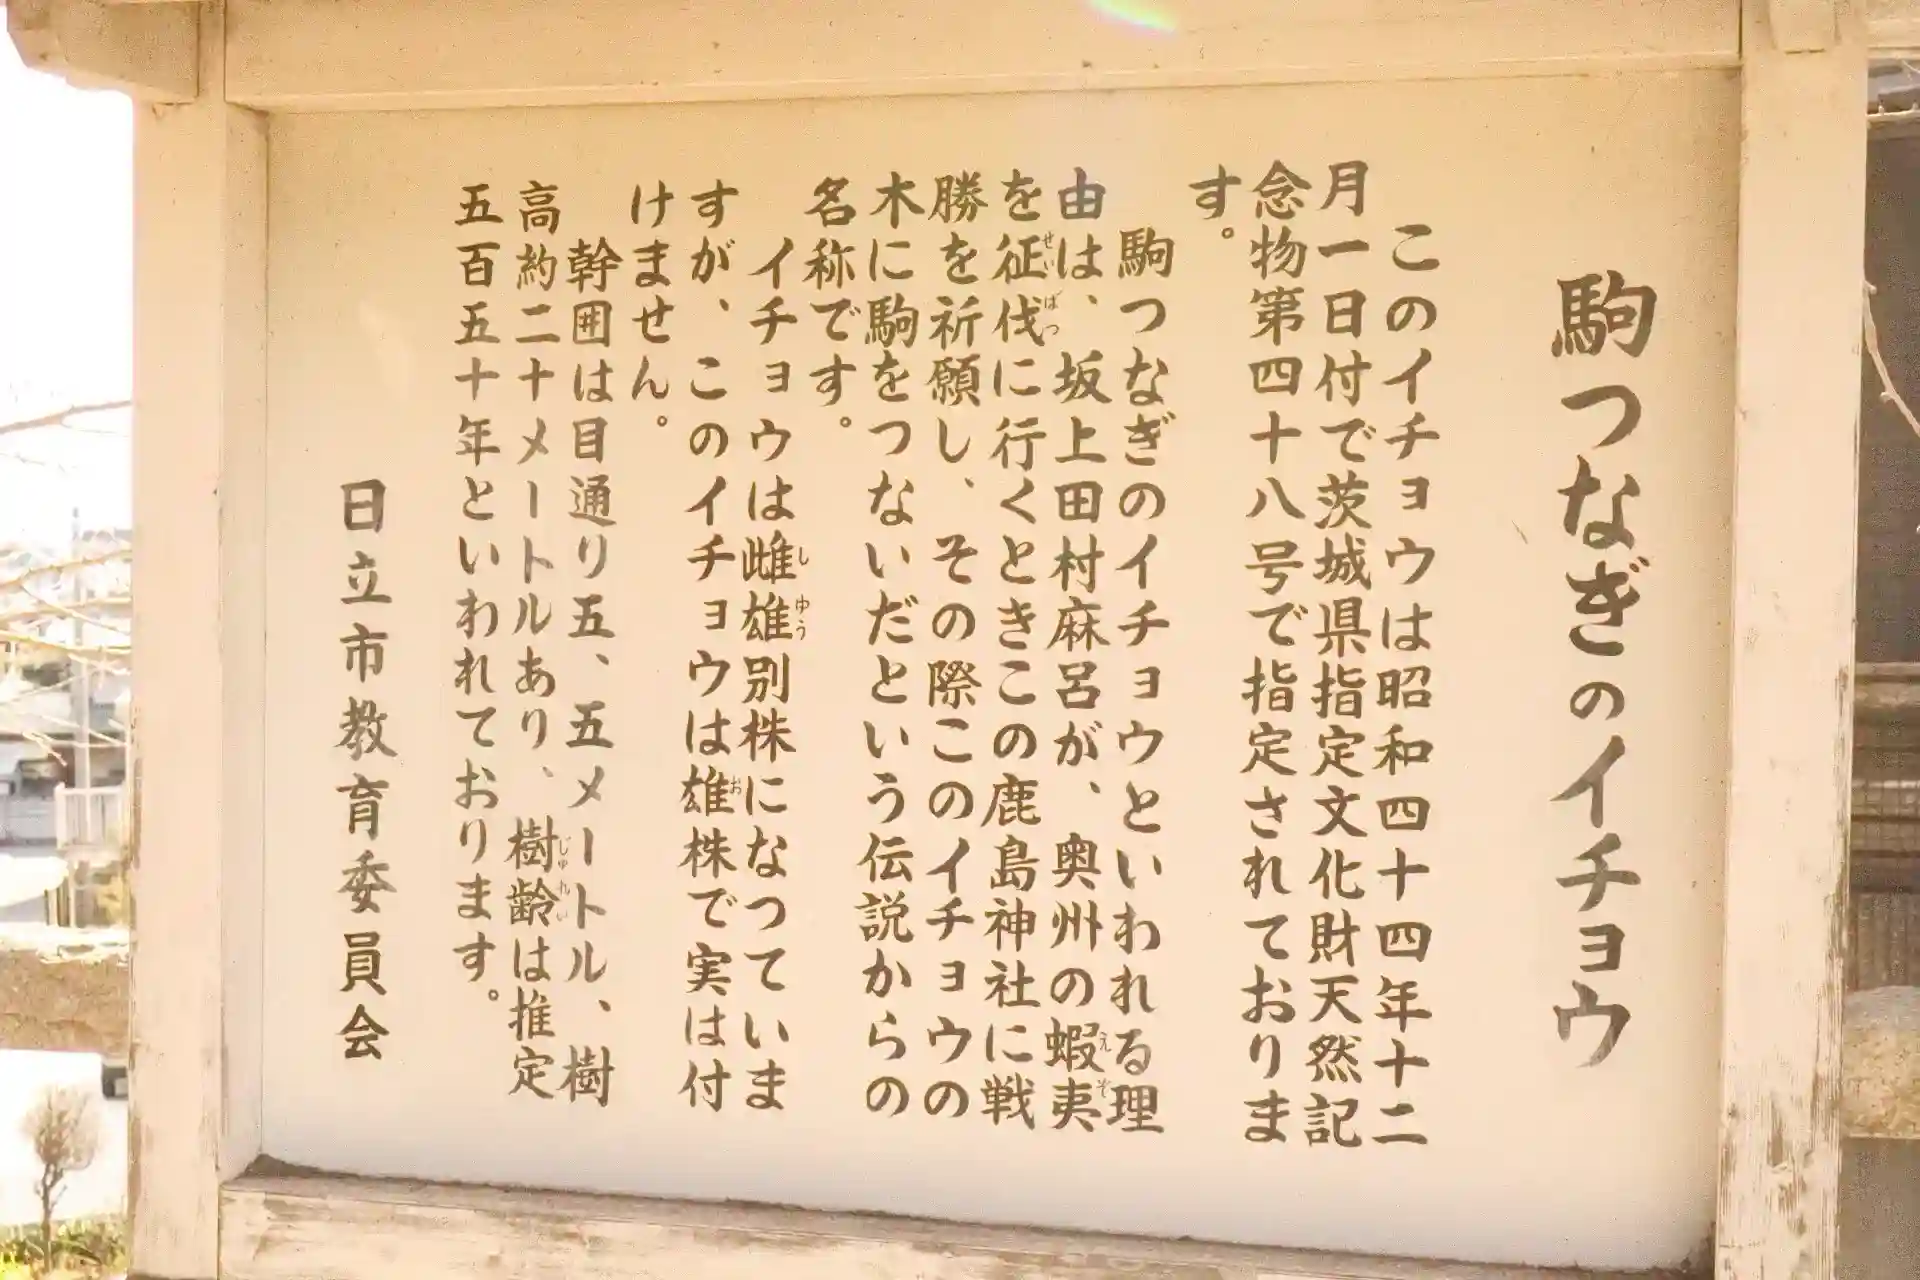 駒つなぎのイチョウ
このイチョウは昭和四十四年十二
月一日付で茨城県指定文化財天然記
念物第四十八号で指定されておりま
す。
駒つなぎのイチョウといわれる理
由は、坂上田村麻呂が、奥州の蝦夷
を征伐に行くときこの鹿島神社に戦
勝を祈願し、その際このイチョウの
木に駒をつないだという伝説からの
名称です。
イチョウは雌雄別株になつていま
すが、このイチョウは雄株で実は付
けません。
幹囲は目通り五、五メートル、樹
高約二十メートルあり、樹齢は推定
五百五十年といわれております。
日立市教育委員会